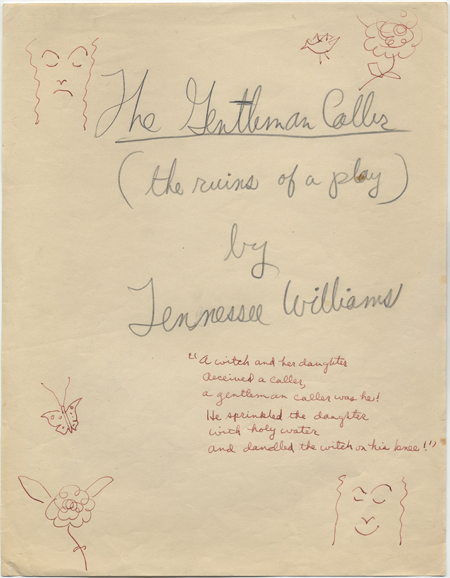 The Gentleman Caller
(the ruins of a play)
by
Tennessee Williams
"A witch and her daughter
received a caller,
a gentleman caller was he!
He sprinkled the daughter
with holy water
and dandled the witch on his knee!"